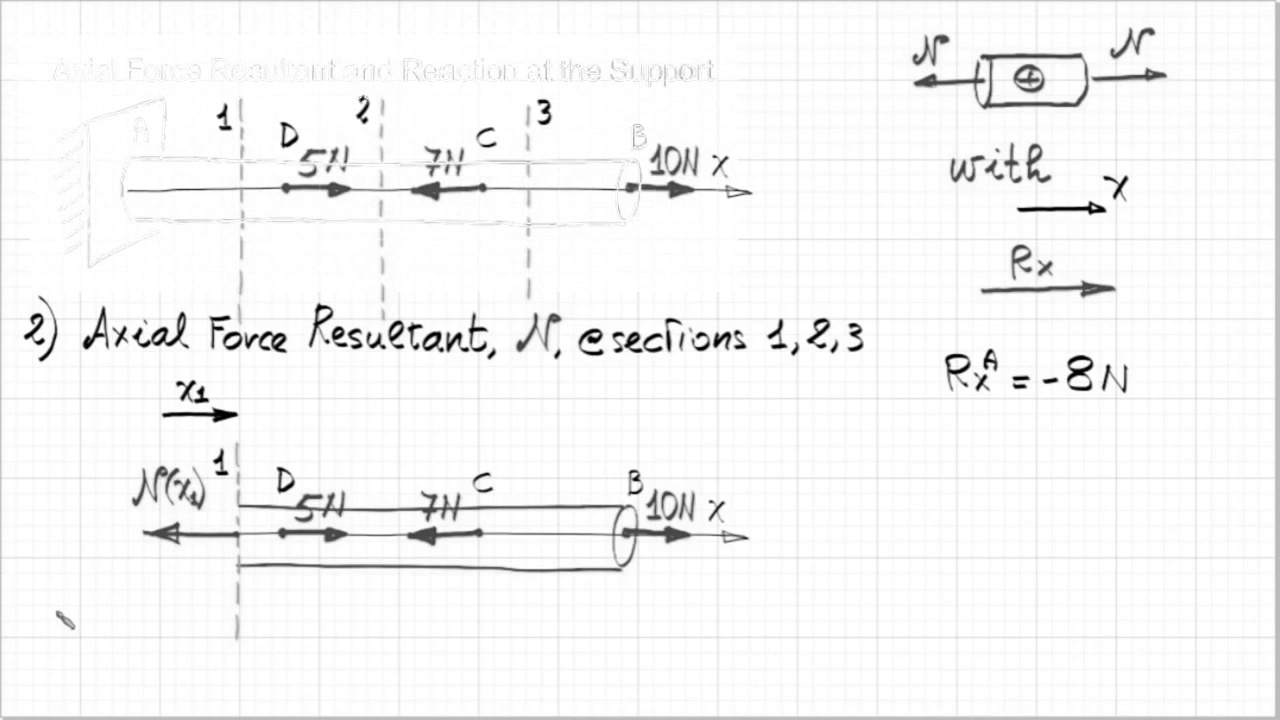 Axial Force Resultant and Reaction at the Support
N N
1 2 3
A D 5N 7N C B 10N x
with
x
Rx
2) Axial Force Resultant, N, @sections 1,2,3
RxA = -8N
x1
N(x1) 1 D 5N 7N C B 10N x